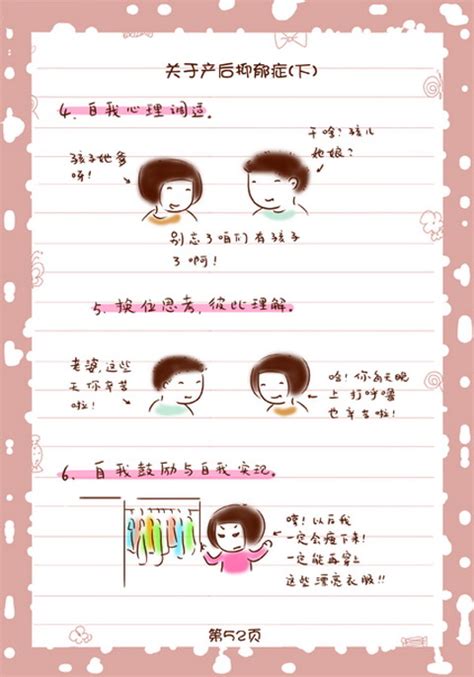 关于产后抑郁症(下)
4、自我心理调适。
孩子她爹
呀!
干啥?孩儿
她娘?
别忘了咱们有孩子
了啊!
5、换位思考,彼此理解。
老婆,这些
天你辛苦
啦!
哈!你每天晚
上打呼噜
也辛苦啦!
6、自我鼓励与自我实现。
哼!以后我
一定会瘦下来!
一定能再穿上
这些漂亮衣服!!
第52页